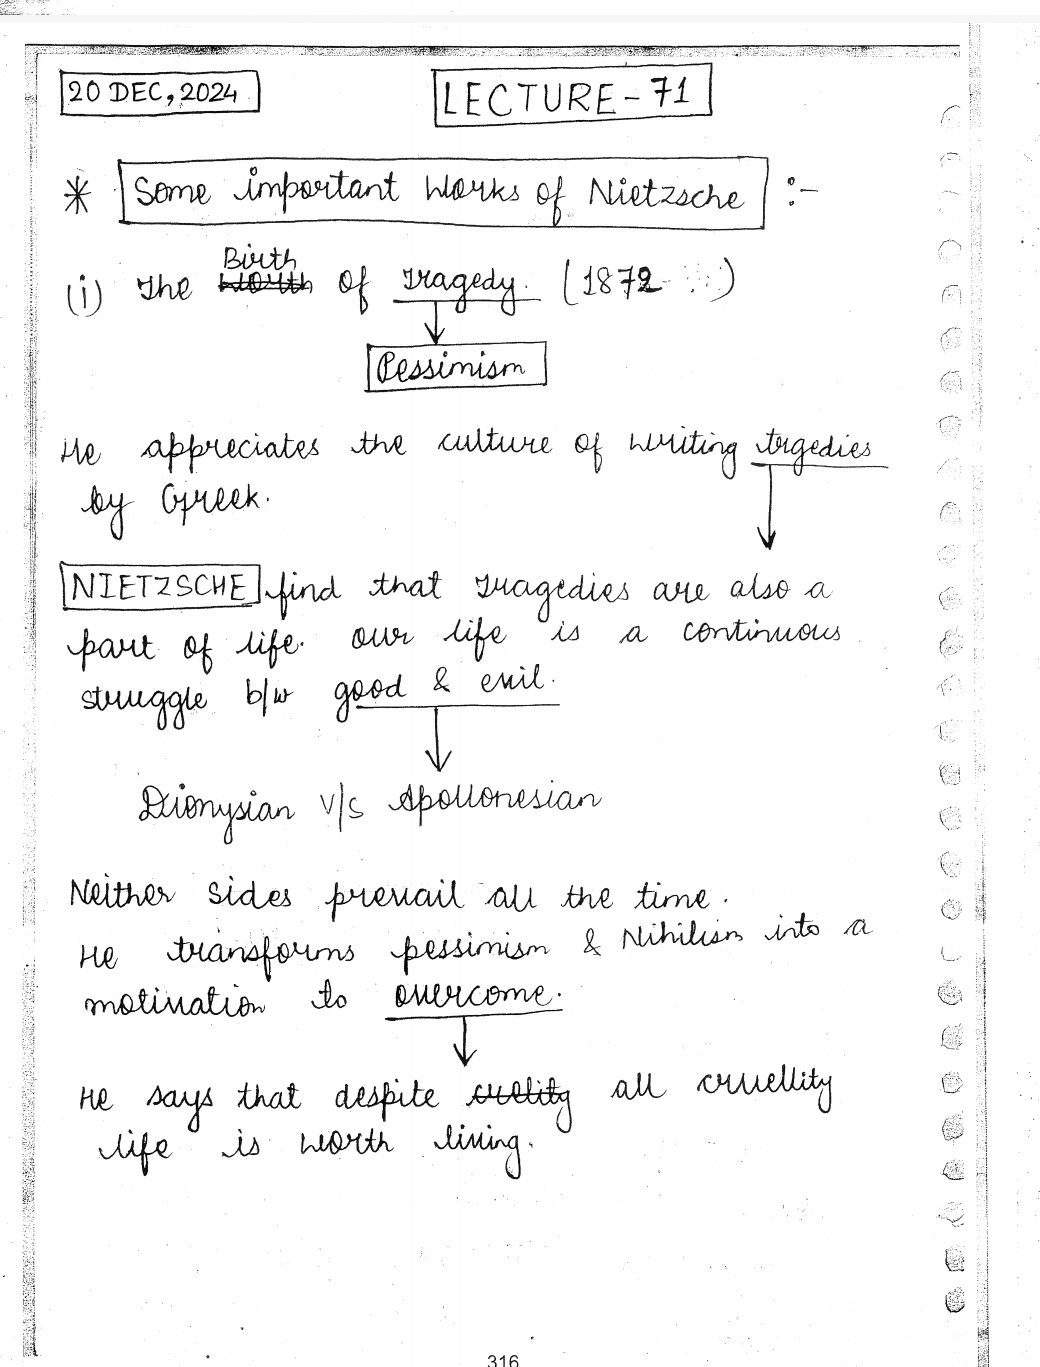 20 DEC, 2024
LECTURE - 71
* Some important Works of Nietzsche :-
Birth
(i) The of Tragedy. (1872 )
Pessimism
He appreciates the culture of writing trgedies
by Greek.
NIETZSCHE find that Tragedies are also a
part of life. our life is a continuous
struggle b/w good & evil.
Dionysian v/s Apollonesian
Neither sides prevail all the time.
He transforms pessimism & Nihilism into a
motivation to overcome.
He says that despite cuelity all cruellity
life is worth living.
316